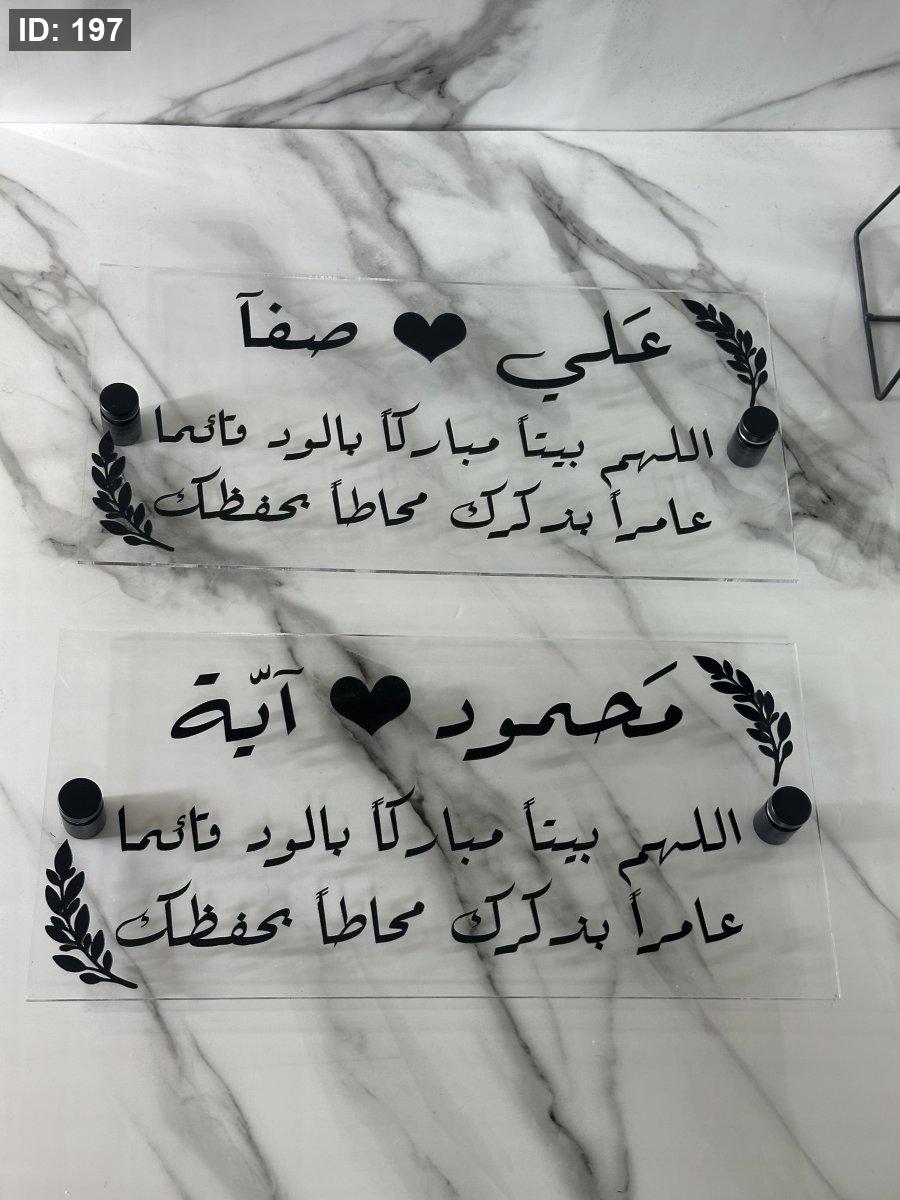 ID: 197
عَلي ♥ صفآ
اللهم بيتاً مباركاً بالود قائما
عامراً بذكرك محاطاً بحفظك
مَحمود ♥ آيّة
اللهم بيتاً مباركاً بالود قائما
عامراً بذكرك محاطاً بحفظك